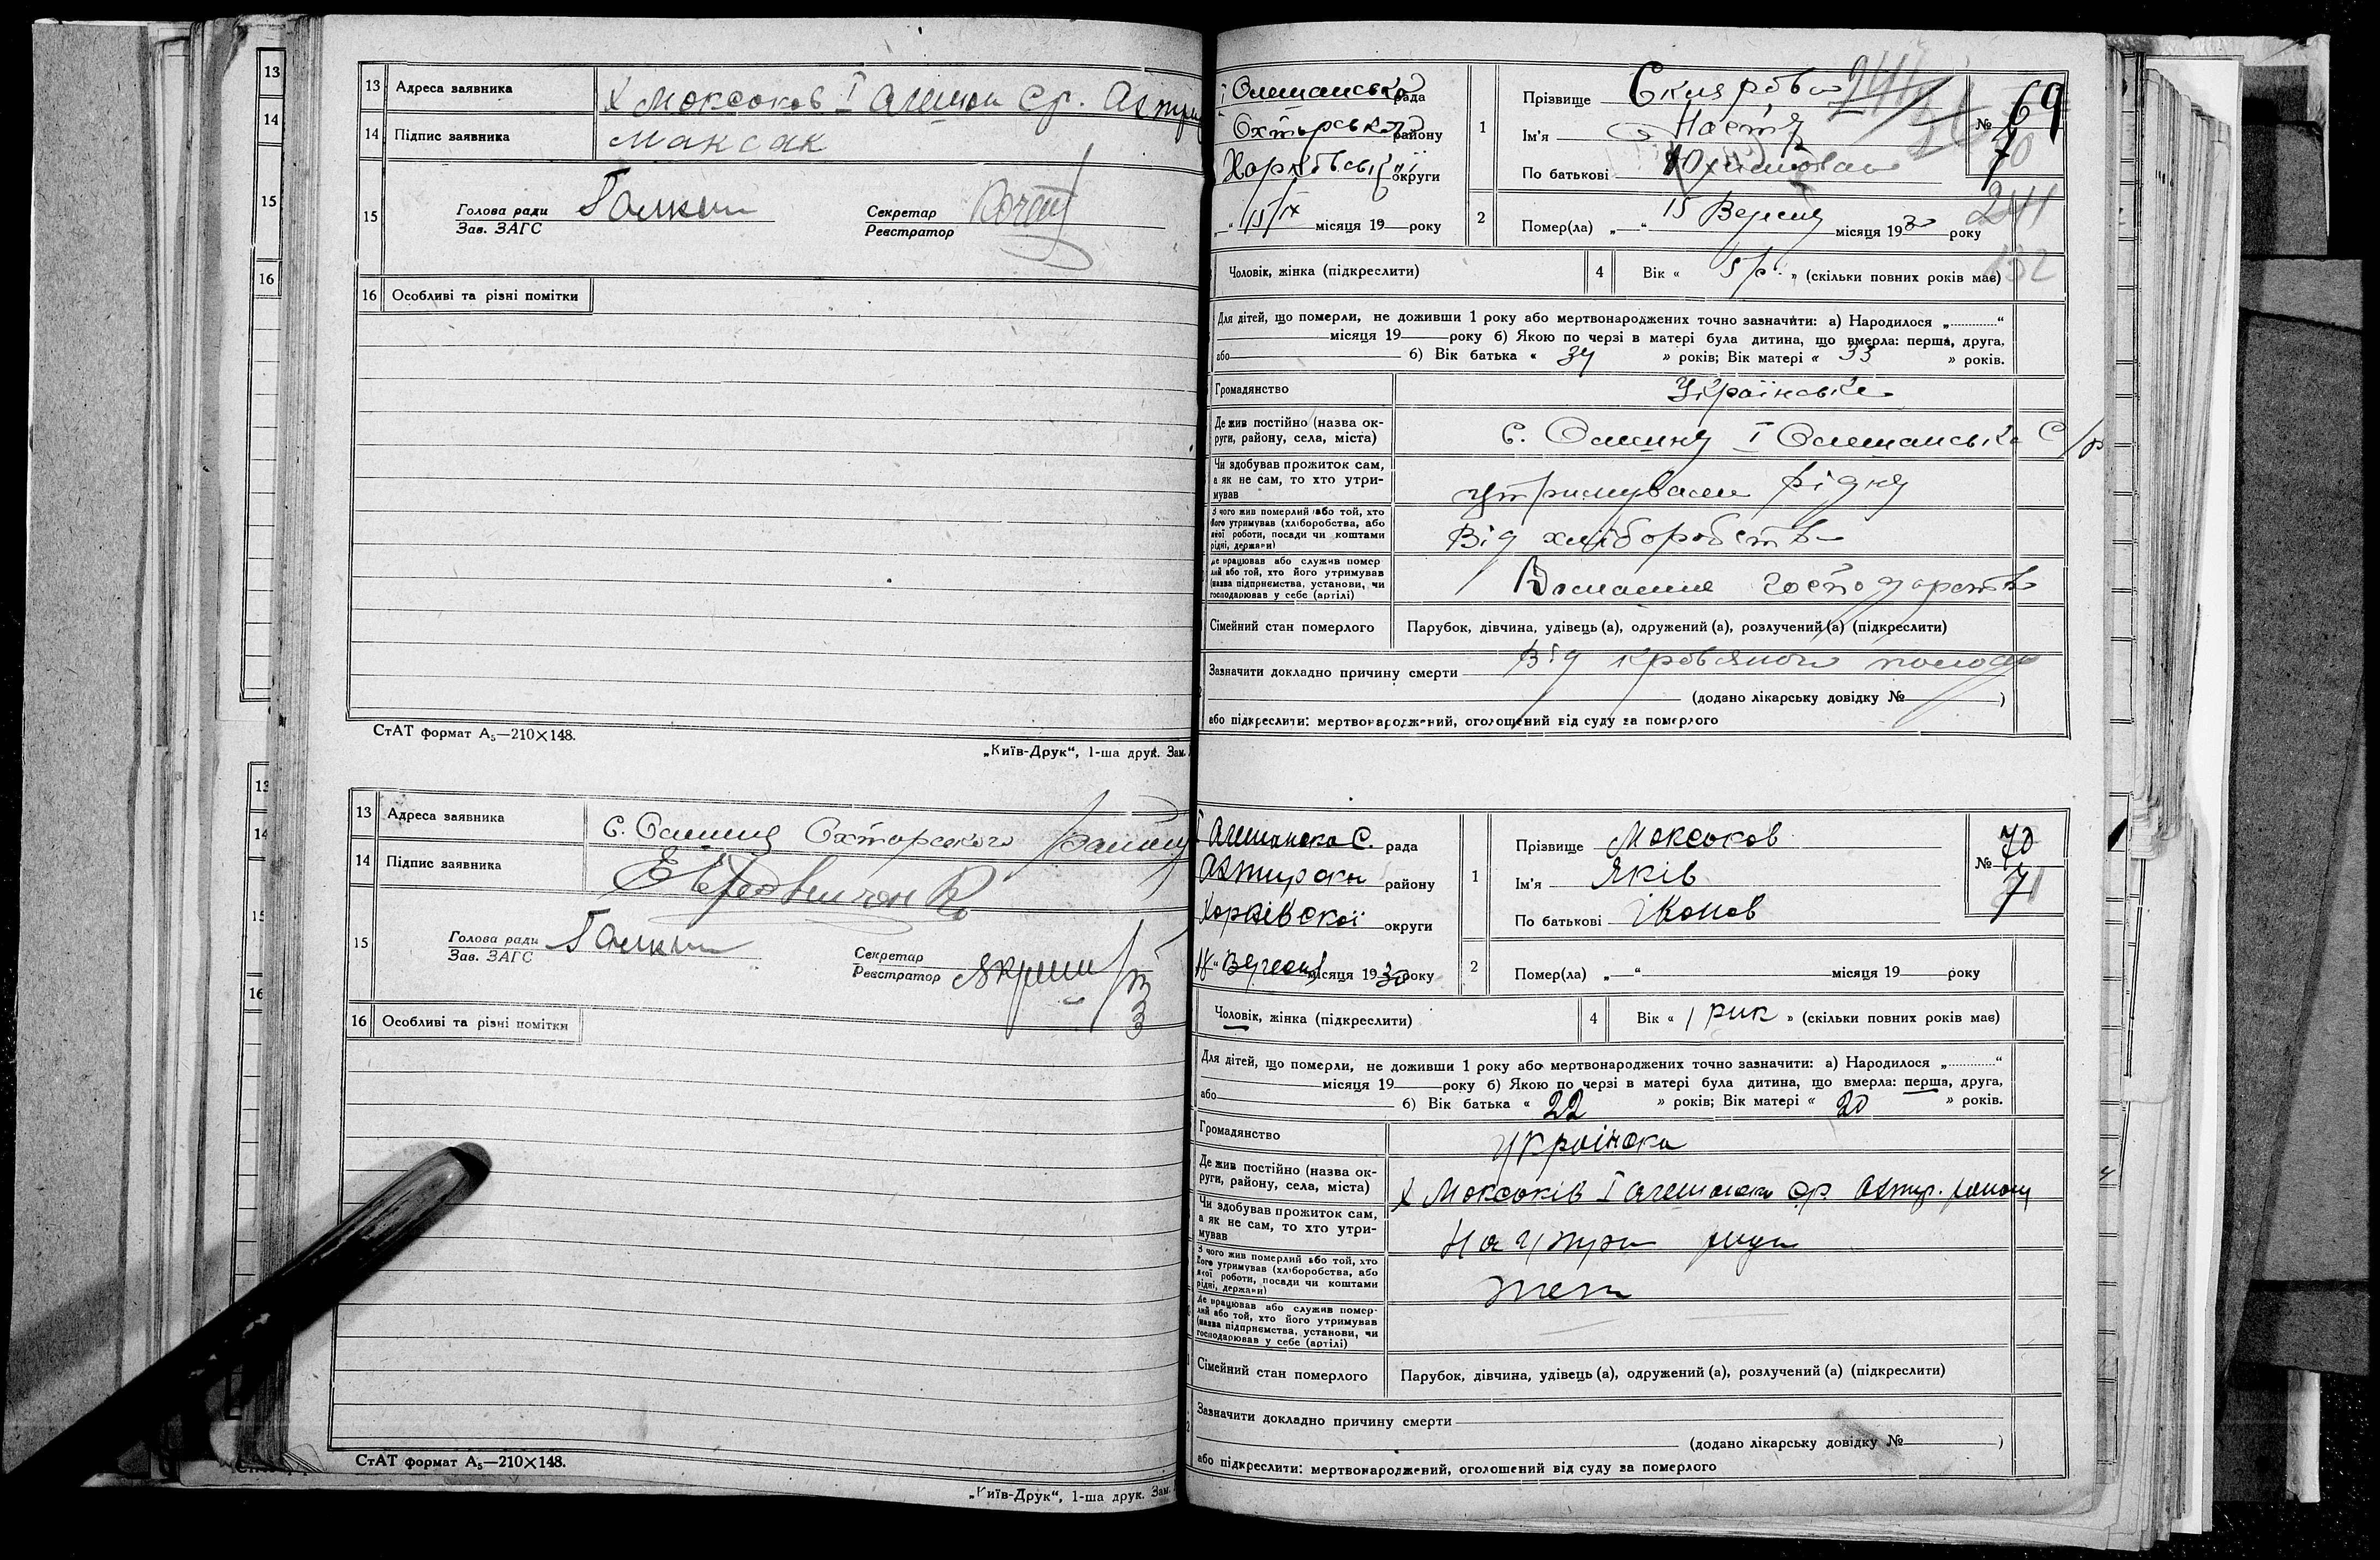 13 Адреса заявника Х Моксоков І Алешан Ср. Ахтир
14 Підпис заявника Максак
15 Голова ради Галкин Секретар
Зав. ЗАГС Реєстратор
16 Особливі та різні помітки
СтАТ формат А₅—210×148.
„Київ-Друк“, 1-ша друк. Зам.
13 Адреса заявника с. Олешня Охторського району
14 Підпис заявника
15 Голова ради Галкин Секретар
Зав. ЗАГС Реєстратор
16 Особливі та різні помітки
СтАТ формат А₅—210×148.
„Київ-Друк“, 1-ша друк. Зам.
І Олешанська рада
Охтирського району
Харківської округи
„ “ 15/IX місяця 19 року
1 Прізвище Склярова
Ім'я Настя
По батькові Юхимовна
№ 69
70
244
132
2 Помер(ла) „ “ 15 Вересня місяця 1930 року
Чоловік, жінка (підкреслити)
4 Вік « 5 р. » (скільки повних років має)
Для дітей, що померли, не доживши 1 року або мертвонароджених точно зазначити: а) Народилося „ “
місяця 19 року б) Якою по черзі в матері була дитина, що вмерла: перша, друга,
або б) Вік батька « 34 » років; Вік матері « 33 » років.
Громадянство Українське
Де жив постійно (назва округи, району, села, міста) с. Олешня І Олешанська С/р
Чи здобував прожиток сам, а як не сам, то хто утримував утримували рідня
З чого жив померлий або той, хто його утримував (хліборобства, або якої роботи, посади чи коштами рідні, держави) Від хліборобства
Де працював або служив померлий або той, хто його утримував (назва підприємства, установи, чи господарював у себе (артілі) Домашнє господарство
Сімейний стан померлого Парубок, дівчина, удівець (а), одружений (а), розлучений (а) (підкреслити)
Зазначити докладно причину смерти Від кров'яного
(додано лікарську довідку № )
або підкреслити: мертвонароджений, оголошений від суду за померлого
І Алешанска С. рада
Ахтирски району
Харківскої округи
Вересня місяця 1930 року
1 Прізвище Моксоков
Ім'я Яків
По батькові Іконов
№ 70
71
2 Помер(ла) „ “ місяця 19 року
Чоловік, жінка (підкреслити)
4 Вік « 1 рик » (скільки повних років має)
Для дітей, що померли, не доживши 1 року або мертвонароджених точно зазначити: а) Народилося „ “
місяця 19 року б) Якою по черзі в матері була дитина, що вмерла: перша, друга,
або б) Вік батька « 22 » років; Вік матері « 20 » років.
Громадянство Українска
Де жив постійно (назва округи, району, села, міста) Х Моксоків І Алешанска Ср. Ахтир. району
Чи здобував прожиток сам, а як не сам, то хто утримував На утри
З чого жив померлий або той, хто його утримував (хліборобства, або якої роботи, посади чи коштами рідні, держави)
Де працював або служив померлий або той, хто його утримував (назва підприємства, установи, чи господарював у себе (артілі)
Сімейний стан померлого Парубок, дівчина, удівець (а), одружений (а), розлучений (а) (підкреслити)
Зазначити докладно причину смерти
(додано лікарську довідку № )
або підкреслити: мертвонароджений, оголошений від суду за померлого